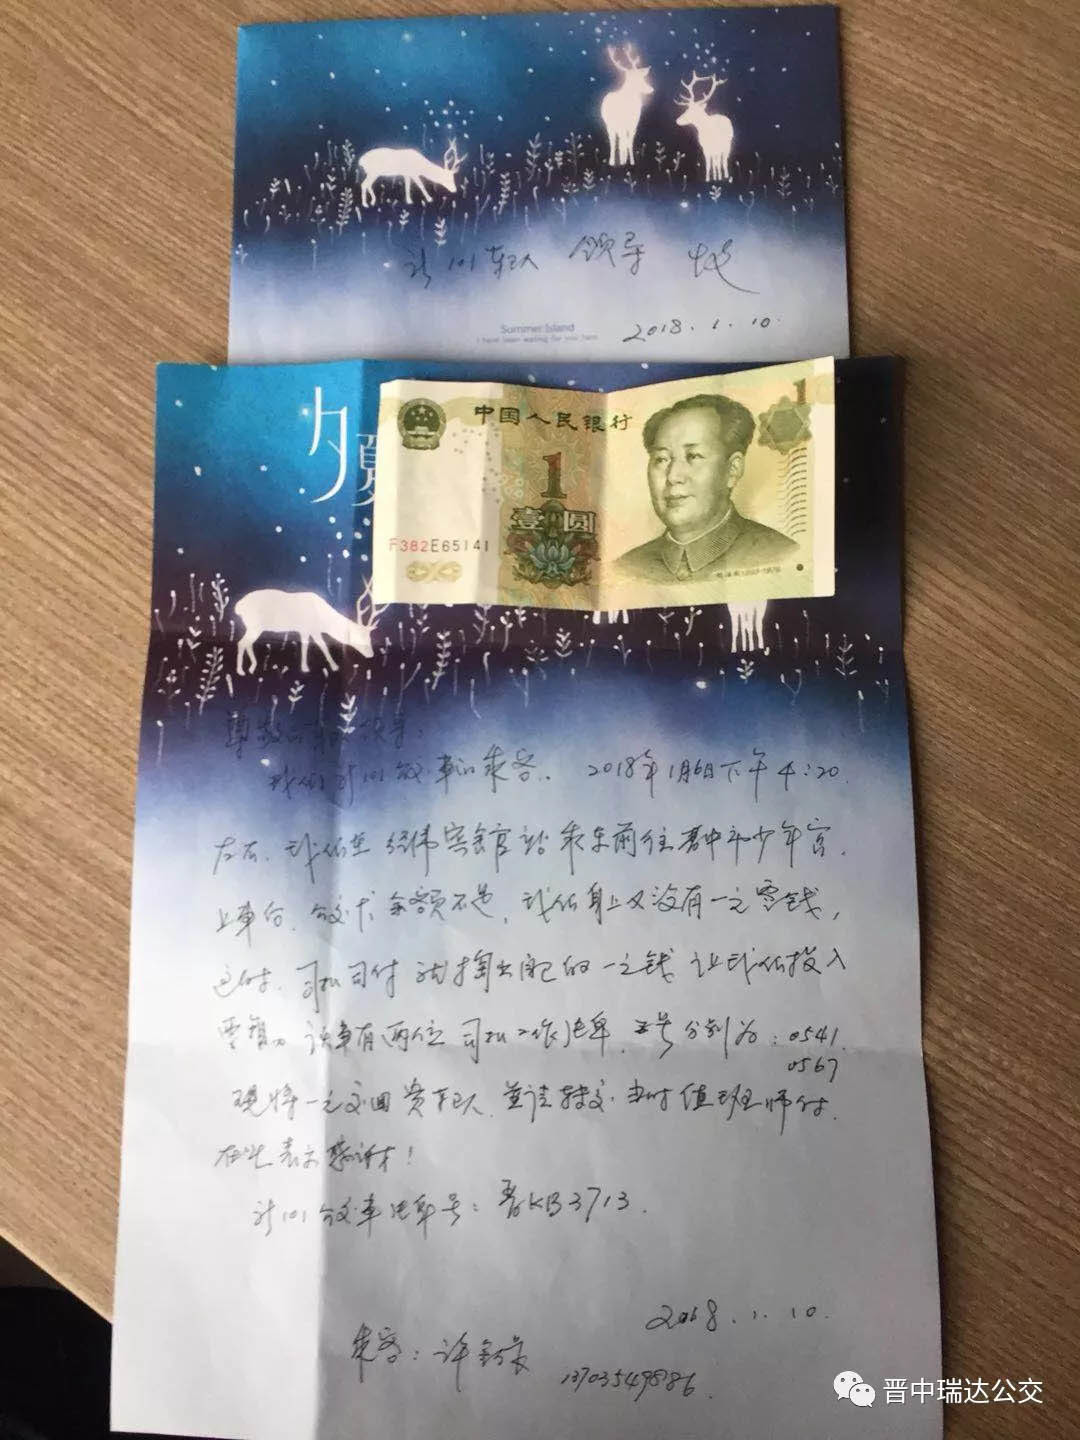 新101车队 领导 收
Summer Island
I have been waiting for you here
2018.1.10.
夕夏
1
中国人民银行
1
壹圆
F382E65141
毛泽东1893-1976
尊敬的车队领导:
我们是新101公交车的乘客. 2018年1月6日下午4:20
左右, 我们在经纬宾馆站乘车前往晋中市少年宫.
上车后, 公交卡余额不足, 我们身上又没有一元零钱,
这时, 司机师付就掏出自己的一元钱让我们投入
零钱. 该车有两位司机工作牌, 工号分别为: 0541.
0567
现将一元交回贵车队, 并请转交当时值班师付.
在此表示感谢!
新101公交车牌号: 晋KB3713.
2018.1.10.
乘客: 许
13703549886.
晋中瑞达公交